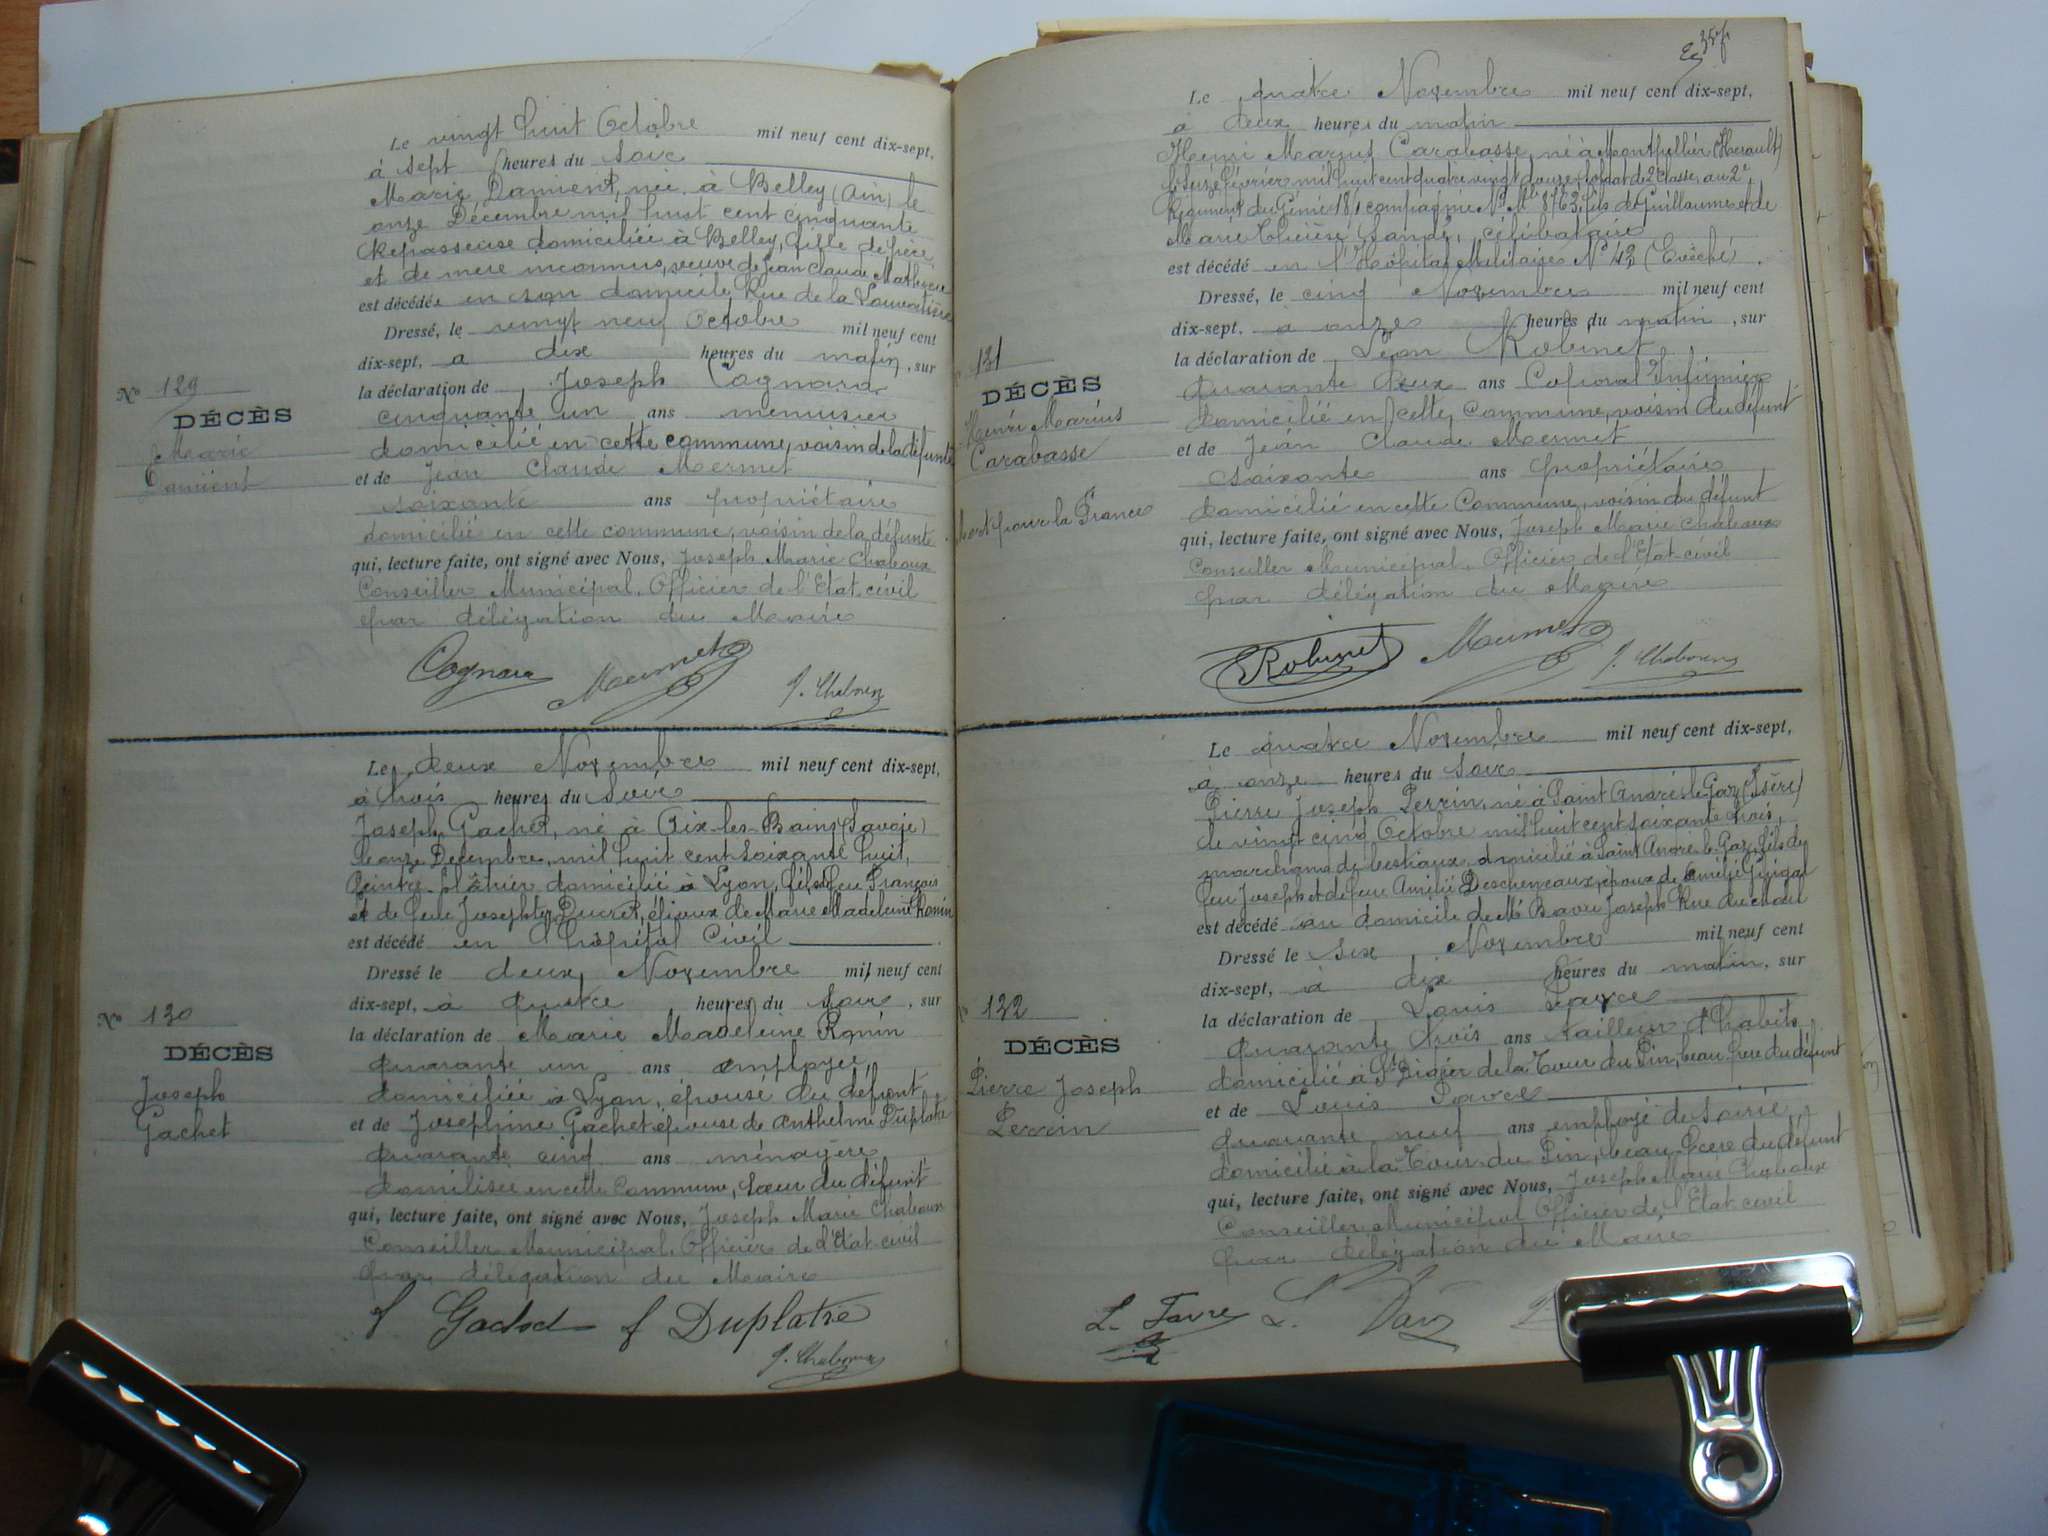 Le vingt huit Octobre mil neuf cent dix-sept,
à sept heures du soir
Marie Damient, née à Belley (Ain) le
onze Décembre mil huit cent cinquante
Repasseuse domiciliée à Belley, fille de père
et de mère inconnus, veuve de Jean Claude
est décédée en son domicile Rue de la
Dressé, le vingt neuf Octobre mil neuf cent
dix-sept, à dix heures du matin, sur
No 129
la déclaration de Joseph Cognard
DÉCÈS
cinquante un ans menuisier
Marie
domicilié en cette commune, voisin de la défunte
Damient
et de Jean Claude Mermet
soixante ans propriétaire
domicilié en cette commune, voisin de la défunte
qui, lecture faite, ont signé avec Nous, Joseph Marie Chaboux
Conseiller Municipal, Officier de l'Etat civil
par délégation du Maire
Cognard Mermet J. Chaboux
Le deux Novembre mil neuf cent dix-sept,
à trois heures du soir
Joseph Gachet, né à Aix-les-Bains (Savoie)
le onze Décembre mil huit cent soixante huit,
Peintre plâtrier domicilié à Lyon, fils de feu François
et de feue Josephte Ducret, époux de Marie Madeleine Ronin
est décédé en l'hôpital Civil
Dressé le deux Novembre mil neuf cent
dix-sept, à quatre heures du soir, sur
No 130
la déclaration de Marie Madeleine Ronin
DÉCÈS
quarante un ans employée
Joseph
domiciliée à Lyon, épouse du défunt
Gachet
et de Joséphine Gachet épouse de Anthelme Duplatre
quarante cinq ans ménagère
domiliée en cette Commune, soeur du défunt
qui, lecture faite, ont signé avec Nous, Joseph Marie Chaboux
Conseiller Municipal, Officier de l'Etat civil
par délégation du Maire
f Gachet f Duplatre
J. Chaboux
Le quatre Novembre mil neuf cent dix-sept,
à deux heures du matin
Henri Marius Carabasse, né à Montpellier (Hérault)
le seize Février mil huit cent quatre vingt douze, soldat de 2e classe au 2e
Régiment du Génie 18/1 compagnie No Mle 8763, fils de Guillaume et de
Marie Thérèse célibataire
est décédé en l'Hôpital Militaire No 43 (Evêché).
Dressé, le cinq Novembre mil neuf cent
dix-sept, à onze heures du matin, sur
131
la déclaration de Léon Robinet
DÉCÈS
quarante deux ans Caporal Infirmier
Henri Marius
domicilié en cette commune, voisin du défunt
Carabasse
et de Jean Claude Mermet
soixante ans propriétaire
Mort pour la France
domicilié en cette Commune, voisin du défunt
qui, lecture faite, ont signé avec Nous, Joseph Marie Chaboux
Conseiller Municipal, Officier de l'Etat civil
par délégation du Maire
Robinet Mermet J. Chaboux
Le quatre Novembre mil neuf cent dix-sept,
à onze heures du soir
Pierre Joseph Perrin, né à Saint André le Gaz (Isère)
le vingt cinq Octobre mil huit cent soixante trois,
marchand de bestiaux domicilié à Saint André le Gaz, fils de
feu Joseph et de feue Amélie Descheneaux époux de Emélie
est décédé au domicile de Mr Joseph Rue du
Dressé le six Novembre mil neuf cent
dix-sept, à dix heures du matin, sur
132
la déclaration de Louis
DÉCÈS
quarante trois ans tailleur d'habits
Pierre Joseph
domicilié à St Didier de la Tour du Pin, beau frère du défunt
Perrin
et de Louis
quarante neuf ans employé de
domicilié à la Tour du Pin, beau frère du défunt
qui, lecture faite, ont signé avec Nous, Joseph Marie Chaboux
Conseiller Municipal Officier de l'Etat civil
par délégation du Maire
L. Favre L.